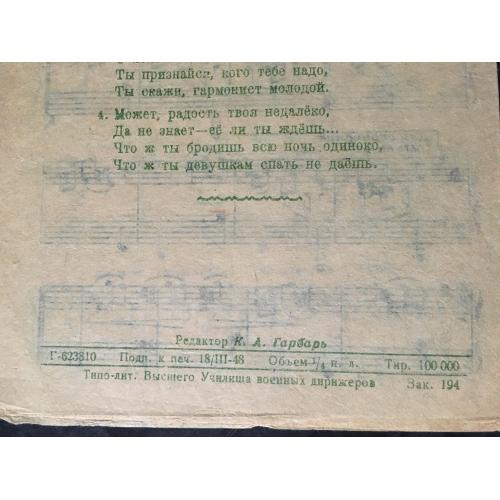 Ты признайся, кого тебе надо,
Ты скажи, гармонист молодой.
4. Может, радость твоя недалёко,
Да не знает—её ли ты ждёшь...
Что ж ты бродишь всю ночь одиноко,
Что ж ты девушкам спать не даёшь.
Редактор К. А. Гарбарь
Г-623810 Подп. к печ. 18/III-48 Объем 1/4 п. л. Тир. 100 000
Типо-лит. Высшего Училища военных дирижеров Зак. 194